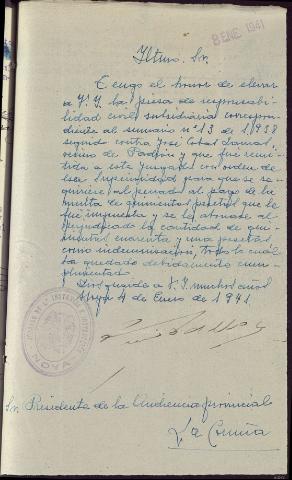 8 ENE 1941
Iltmo. Sr.
Tengo el honor de elevar
a V. I. la pieza de responsabi-
lidad civil subsidiaria correspon-
diente al sumario nº 13 de 1.938
seguido contra José Cobas Lamas,
vecino de Padrón y que fue remi-
tida a este Juzgado con orden de
esa Superioridad para que se re-
quiriese al penado al pago de la
multa de quinientas pesetas que le
fue impuesta y se le abonase al
perjudicado la cantidad de qui-
nientas cuarenta y una pesetas
como indemnización, todo lo cual
ha quedado debidamente cum-
plimentado.
Dios guarde a V. I. muchos años
4 de Enero de 1941.
Sr. Presidente de la Audiencia provincial
La Coruña